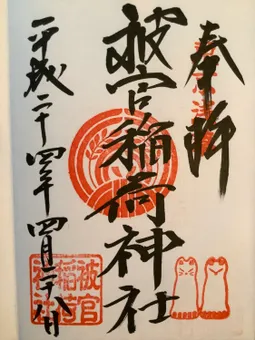 奉拝
被官稲荷神社
平成二十四年四月二十八日
被官
稲荷
神社